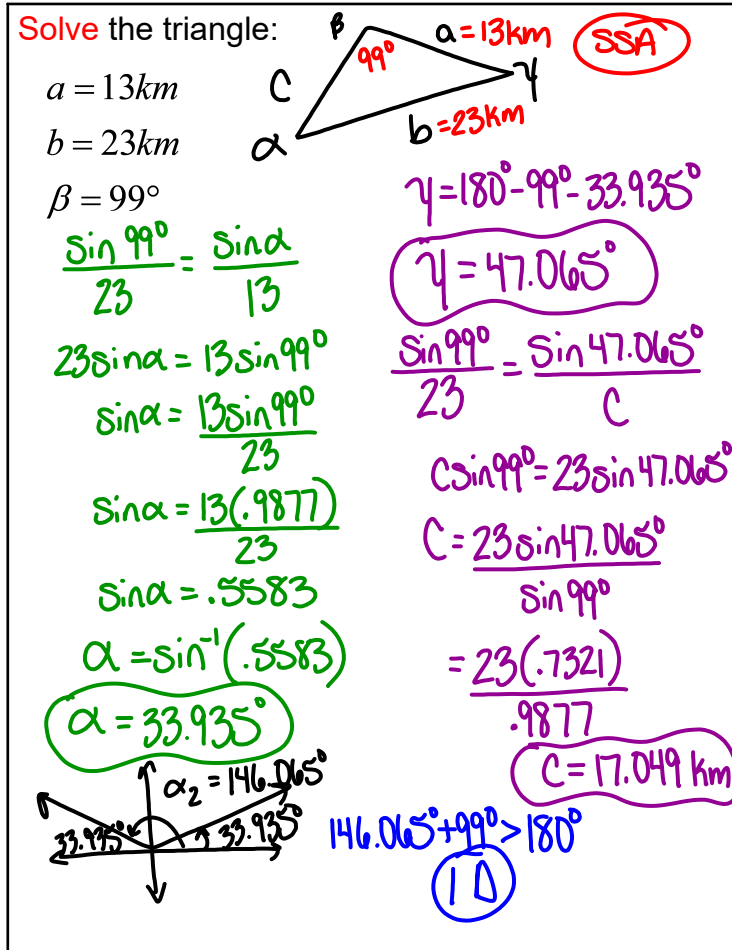 Solve the triangle:
a = 13km
b = 23km
β = 99°
β
99°
a = 13km
γ
C
α
b = 23km
SSA
sin 99° / 23 = sin α / 13
23 sin α = 13 sin 99°
sin α = 13 sin 99° / 23
sin α = 13(.9877) / 23
sin α = .5583
α = sin⁻¹(.5583)
α = 33.935°
α₂ = 146.065°
33.935°
33.935°
γ = 180° - 99° - 33.935°
γ = 47.065°
sin 99° / 23 = sin 47.065° / C
C sin 99° = 23 sin 47.065°
C = 23 sin 47.065° / sin 99°
= 23(.7321) / .9877
C = 17.049 km
146.065° + 99° > 180°
1 Δ